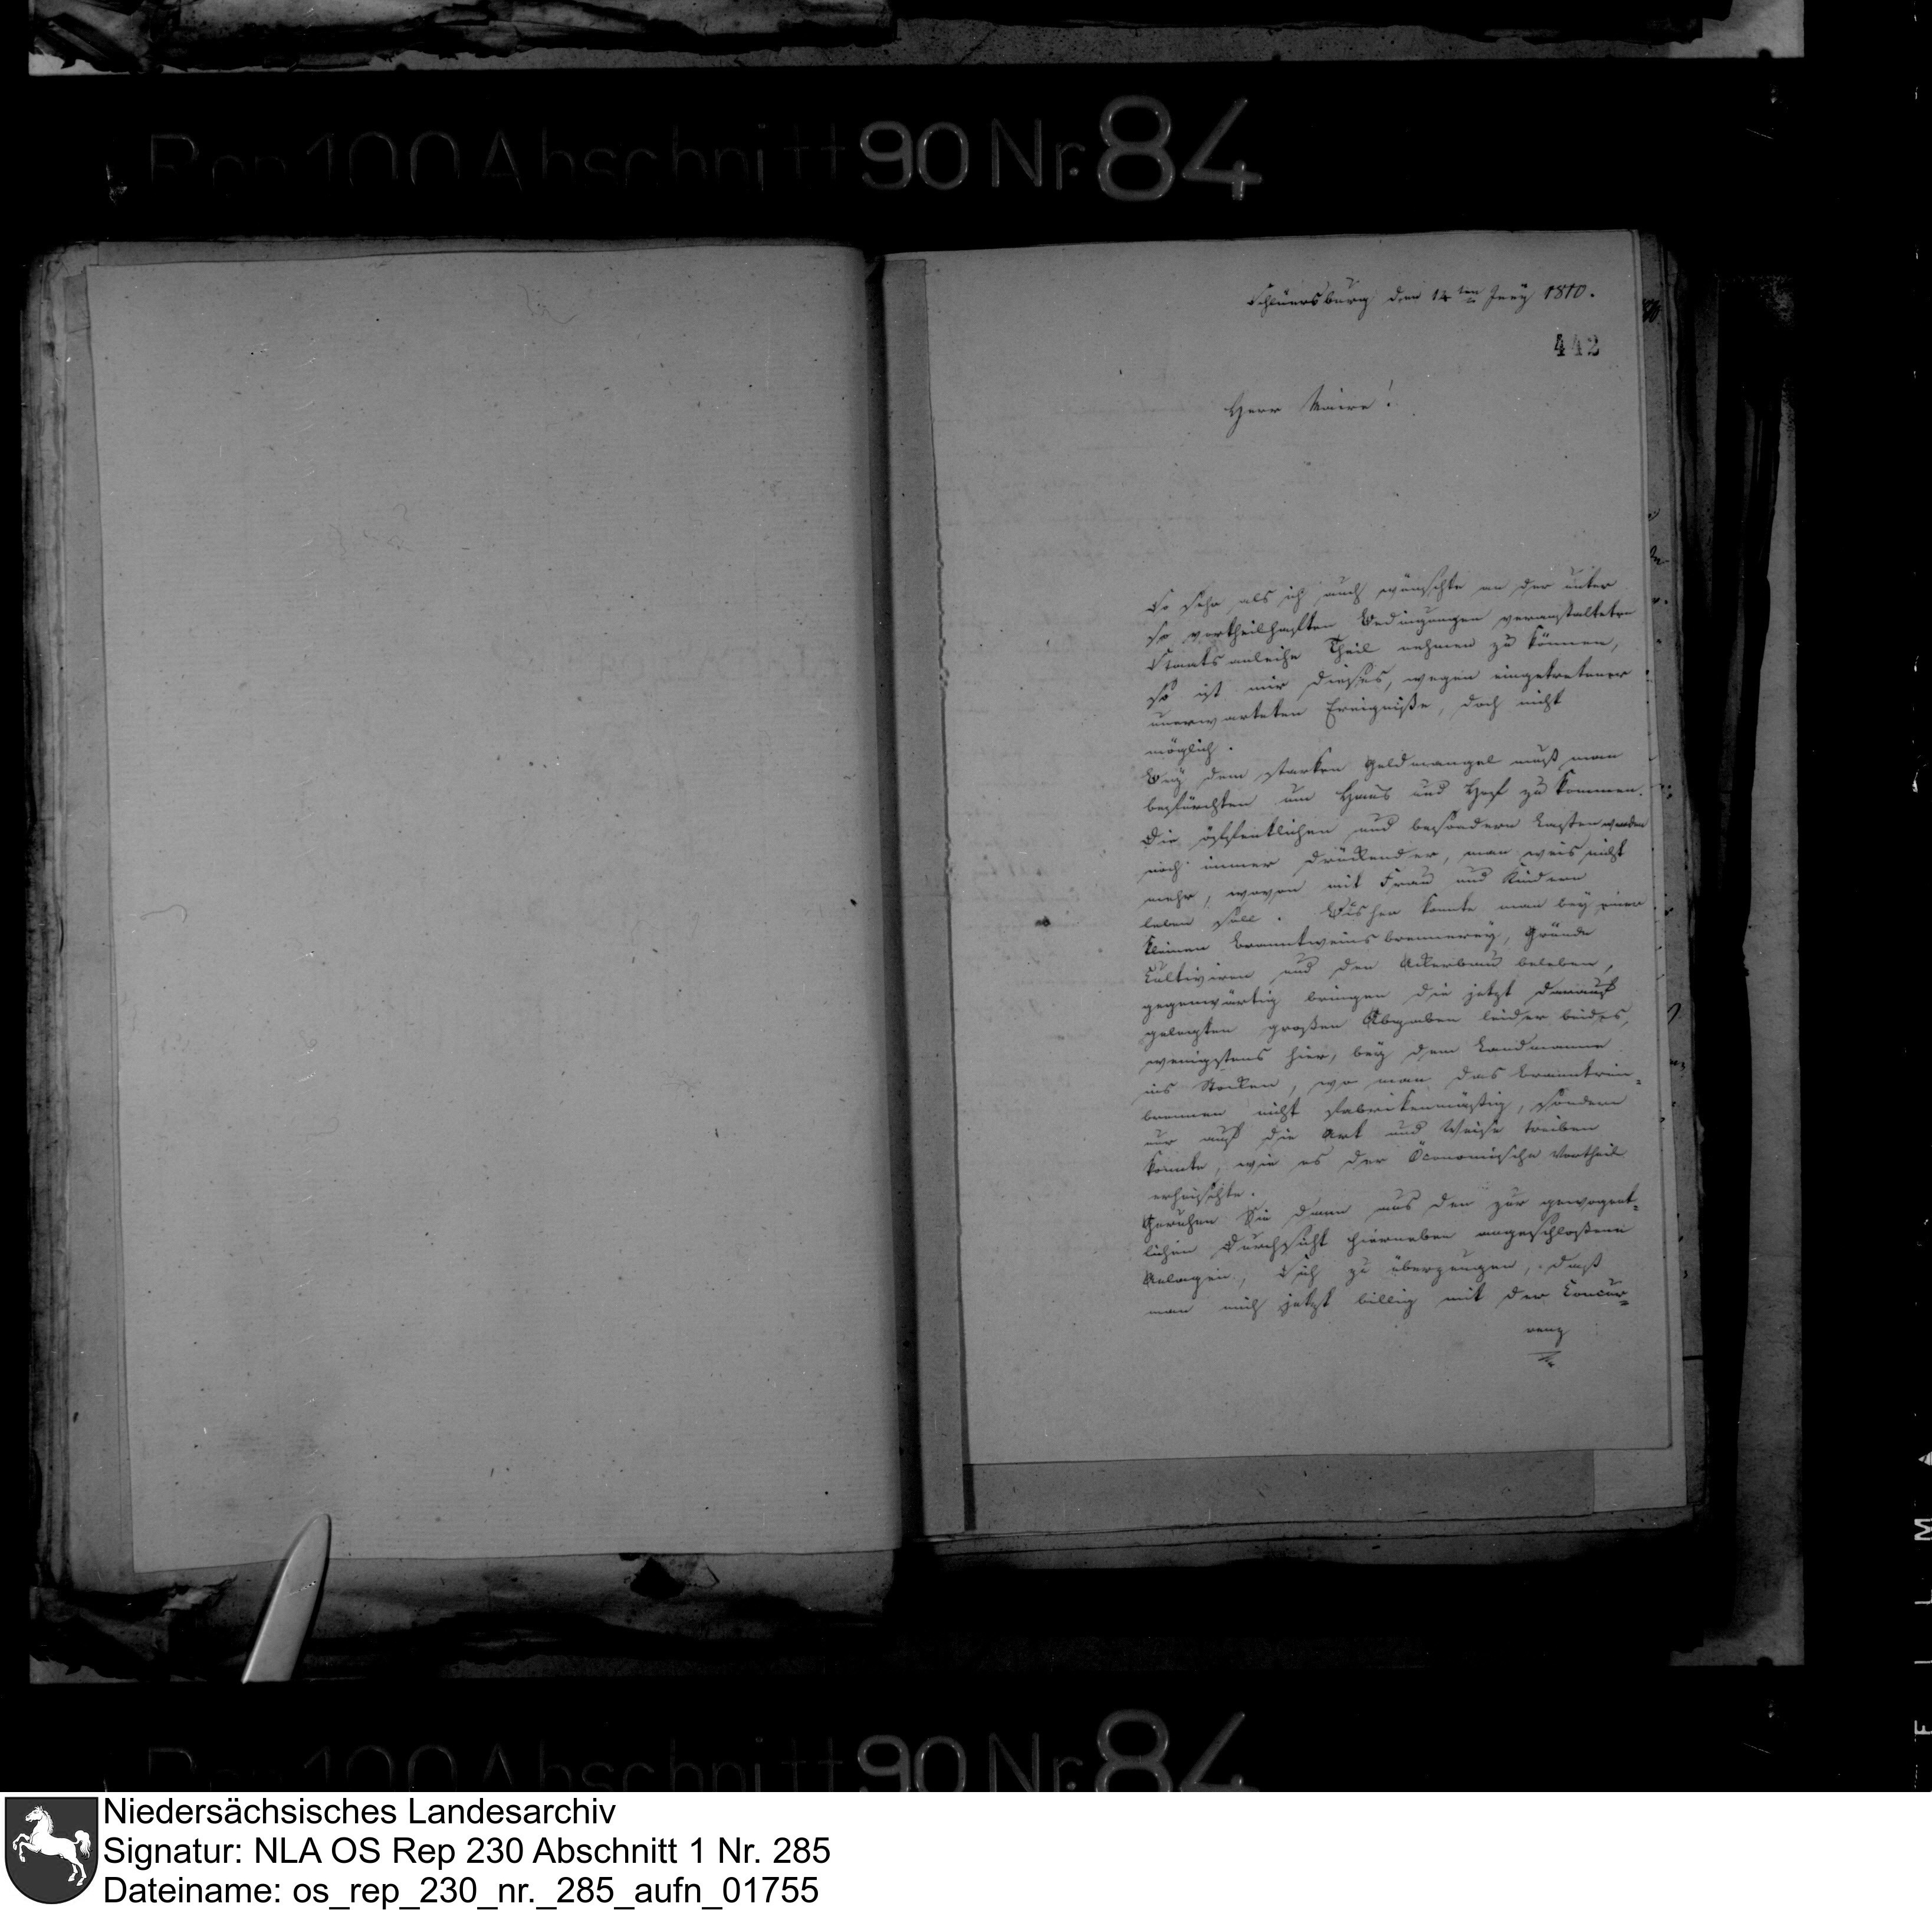 Rep 100 Abschnitt 90 Nr. 84
Schleuersburg den 14ten Juny 1810.
442
Herr Maire!
So sehr als ich auch wünschte an der unter
so vortheilhaften Bedingungen veranstalteten
Staatsanleihe Theil nehmen zu können,
so ist mir dieses, wegen eingetretener
unerwarteten Ereigniße, doch nicht
möglich.
Bey dem starken Geldmangel muß man
befürchten um Haus und Hof zu kommen.
Die öffentlichen und besondern Lasten werden
noch immer drückender, man weis nicht
mehr, wovon mit Frau und Kindern
leben soll. Bisher konnte man bey einer
kleinen Branntweinsbrennerey, Gründe
Cultiviren und den Ackerbau beleben,
gegenwärtig bringen die jetzt darauf
gelegten großen Abgaben leider beides,
wenigstens hier, bey dem Landmanne
ins Stocken, wo man das Brantwein-
brennen nicht Fabrikenmäßig, sondern
nur auf die Art und Weise treiben
konnte, wie es der Öconomische Vortheil
erheischte.
Geruhen Sie dann aus den zur gewogent-
lichen Durchsicht hierneben angeschloßenen
Anlagen, Sich zu überzeugen, daß
man mich jetzt billig mit der Concur-
renz
Rep 100 Abschnitt 90 Nr. 84
FILM
Niedersächsisches Landesarchiv
Signatur: NLA OS Rep 230 Abschnitt 1 Nr. 285
Dateiname: os_rep_230_nr._285_aufn_01755